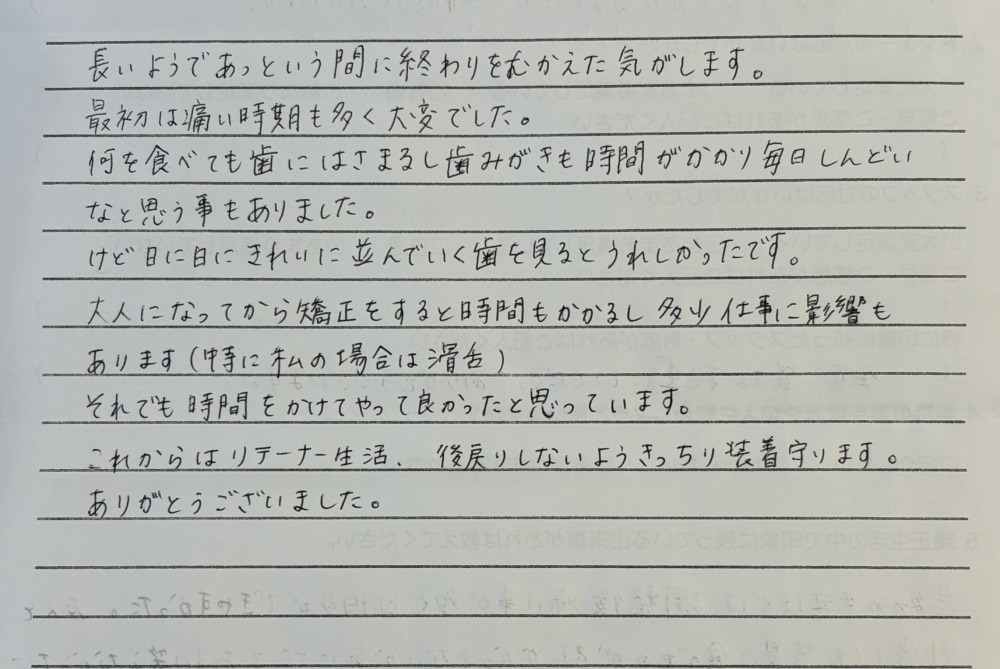 長いようであっという間に終わりをむかえた気がします。
最初は痛い時期も多く大変でした。
何を食べても歯にはさまるし歯みがきも時間がかかり毎日しんどい
なと思う事もありました。
けど日に日にきれいに並んでいく歯を見るとうれしかったです。
大人になってから矯正をすると時間もかかるし多少仕事に影響も
あります(特に私の場合は滑舌)
それでも時間をかけてやって良かったと思っています。
これからはリテーナー生活、後戻りしないようきっちり装着守ります。
ありがとうございました。